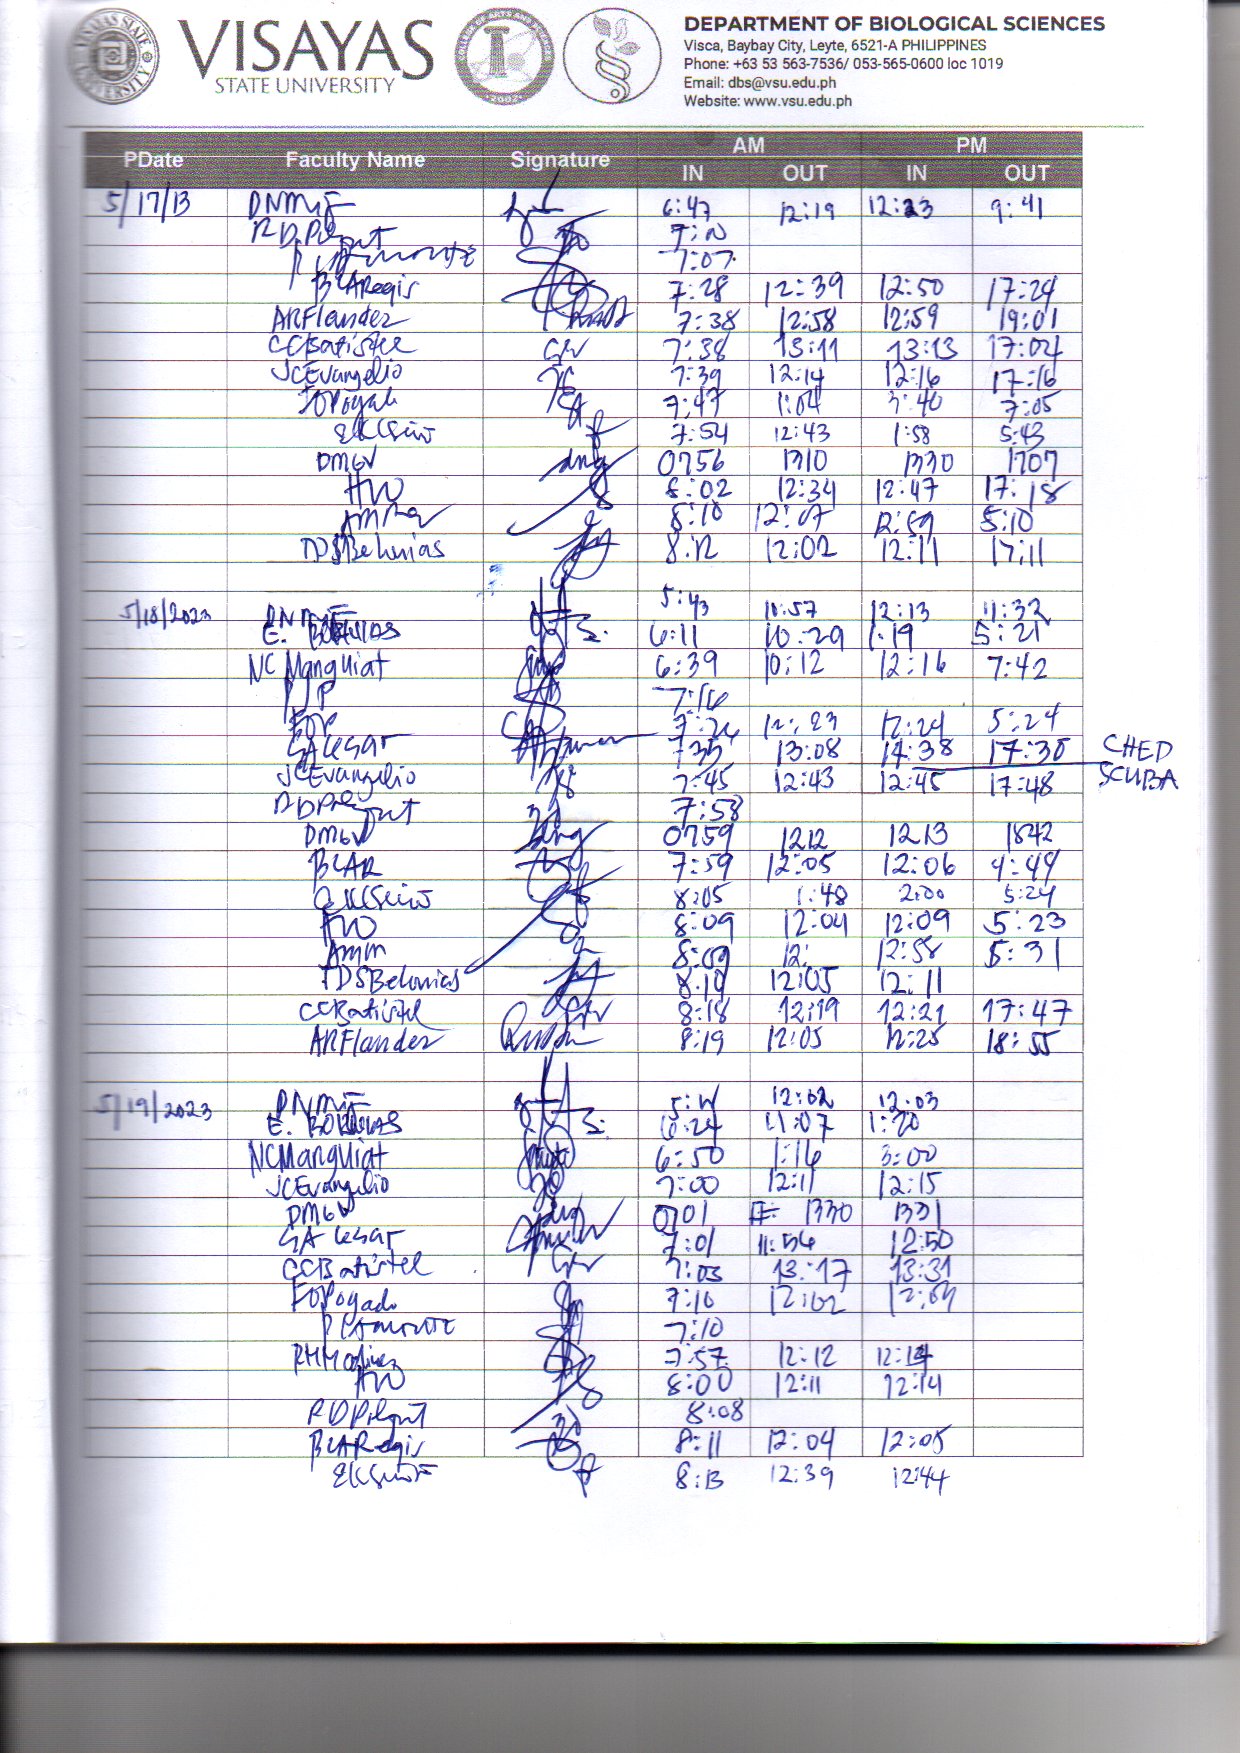 VISAYAS
STATE UNIVERSITY
DEPARTMENT OF BIOLOGICAL SCIENCES
Visca, Baybay City, Leyte, 6521-A PHILIPPINES
Phone: +63 53 563-7536/ 053-565-0600 loc 1019
Email: dbs@vsu.edu.ph
Website: www.vsu.edu.ph
PDate Faculty Name Signature AM IN OUT PM IN OUT
5/17/13 6:47 12:19 12:23 9:41
7:07
BCARegis 7:28 12:39 12:50 17:24
ARFlander 7:38 12:58 12:59 19:01
CCBatistel 7:38 13:11 13:13 17:04
JCEvangelio 7:39 12:14 12:16 17:16
7:47 1:04 3:40 7:05
7:54 12:43 1:58 5:43
DMGV 0756 1310 1330 1707
HVO 8:02 12:34 12:47 17:18
8:10 12:07 12:59 5:10
TDSBelonias 8:12 12:02 12:11 17:11
5/18/2023 5:43 11:57 12:13 11:32
E. 6:11 10:29 1:19 5:21
NCManguiat 6:39 10:12 12:16 7:42
PJP 7:16
FOP 7:26 12:23 12:24 5:24
735 13:08 14:38 17:30 CHED
JCEvangelio 7:45 12:43 12:45 17:48 SCUBA
7:58
DMGV 0759 1212 1213 1842
BCAR 7:59 12:05 12:06 4:49
8:05 1:48 2:00 5:24
HVO 8:09 12:04 12:09 5:23
AMM 8:09 12: 12:58 5:31
TDSBelonias 8:10 12:05 12:11
CCBatistel 8:18 12:19 12:21 17:47
ARFlander 8:19 12:05 12:25 18:55
5/19/2023 12:02 12:03
E. 6:24 11:07 1:20
NCManguiat 6:50 1:16 3:00
JCEvangelio 7:00 12:11 12:15
DMGV 0701 1330 1331
7:01 11:56 12:50
CCBatistel 7:03 13:17 13:31
FOPogado 7:10 12:02 12:04
7:10
7:57 12:12 12:14
HVO 8:00 12:11 12:14
8:08
BCARegis 8:11 12:04 12:05
8:13 12:39 12:44